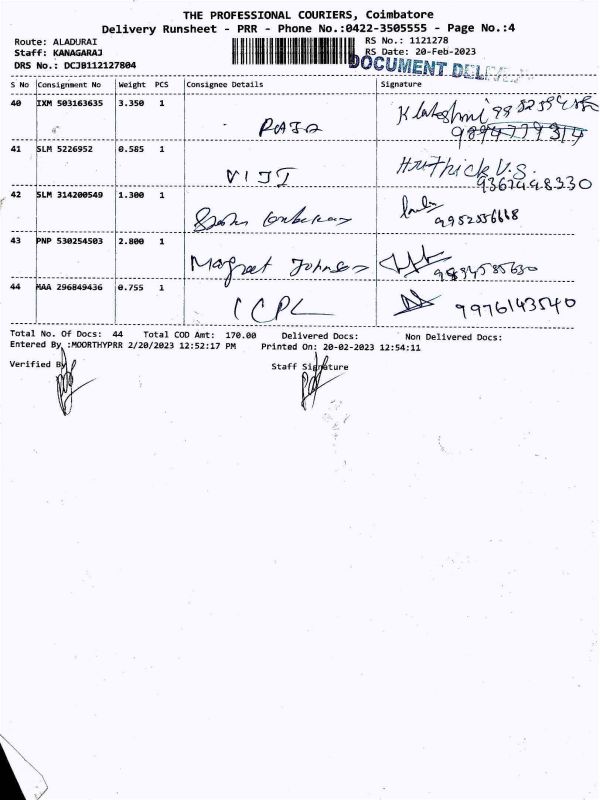 THE PROFESSIONAL COURIERS, Coimbatore
Delivery Runsheet - PRR - Phone No.:0422-3505555 - Page No.:4
Route: ALADURAI
RS No.: 1121278
Staff: KANAGARAJ
RS Date: 20-Feb-2023
DRS No.: DCJB112127804
DOCUMENT
S No Consignment No Weight PCS Consignee Details Signature
40 IXM 503163635 3.350 1
RAJA
41 SLM 5226952 0.585 1 Hruthick V.S.
VIJI
42 SLM 314200549 1.300 1
9952556668
43 PNP 530254503 2.800 1
Magreet Johnson
44 MAA 296849436 0.755 1
ICPL 9976143540
Total No. Of Docs: 44 Total COD Amt: 170.00 Delivered Docs: Non Delivered Docs:
Entered By :MOORTHYPRR 2/20/2023 12:52:17 PM Printed On: 20-02-2023 12:54:11
Verified By Staff Signature